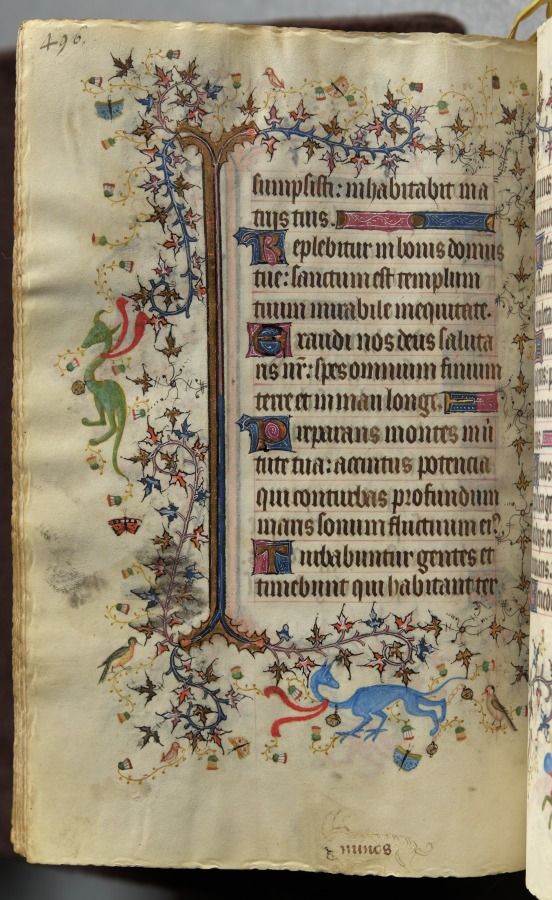 496.
sumpsisti: inhabitabit in a
trijs tuis.
Replebitur in bonis domus
tue: sanctum est templum
tuum mirabile in equitate.
Exaudi nos deus saluta
ris nr̄: spes omnium finium
terre et in mari longe.
Preparans montes in ūi
tute tua: accintus potencia
qui conturbas profundum
maris sonum fluctuum ei?
Turbabuntur gentes et
timebunt qui habitant ter
nunos